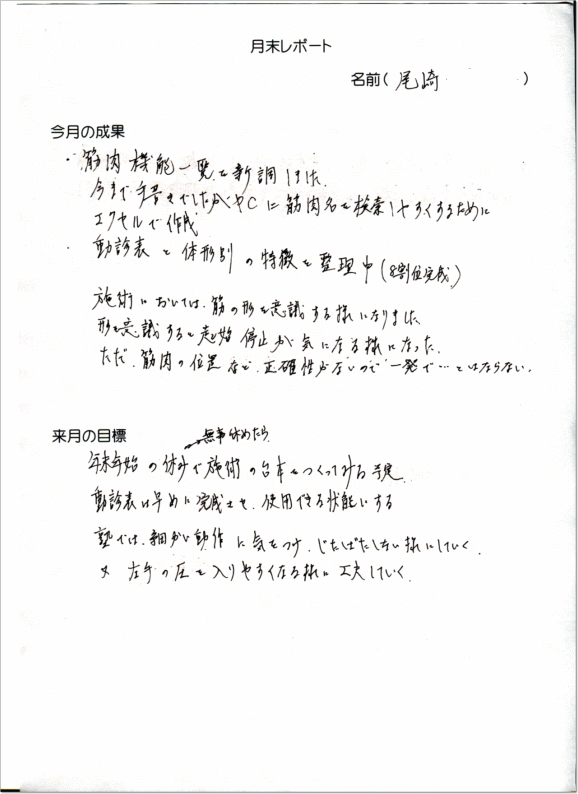 月末レポート
名前( 尾崎 )
今月の成果
・筋肉機能一覧を新調しました
今まで手書きでしたがPCに筋肉名を検索しやすくするために
エクセルで作成
・動診表と体形別の特徴を整理中(8割位完成)
施術においては、筋の形を意識する様になりました
形を意識すると起始 停止が気になる様になった。
ただ、筋肉の位置など、正確性がないので一発で…とはならない。
来月の目標
無事休めたら
年末年始の休みで施術の台本をつくってみる予定
動診表は早めに完成させ、使用できる状態にする
塾では、細かい動作に気をつけ、じたばたしない様にしていく。
又 左手の圧を入りやすくなる様に工夫していく。